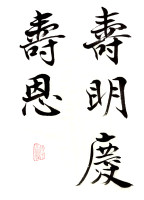 壽明慶
壽恩